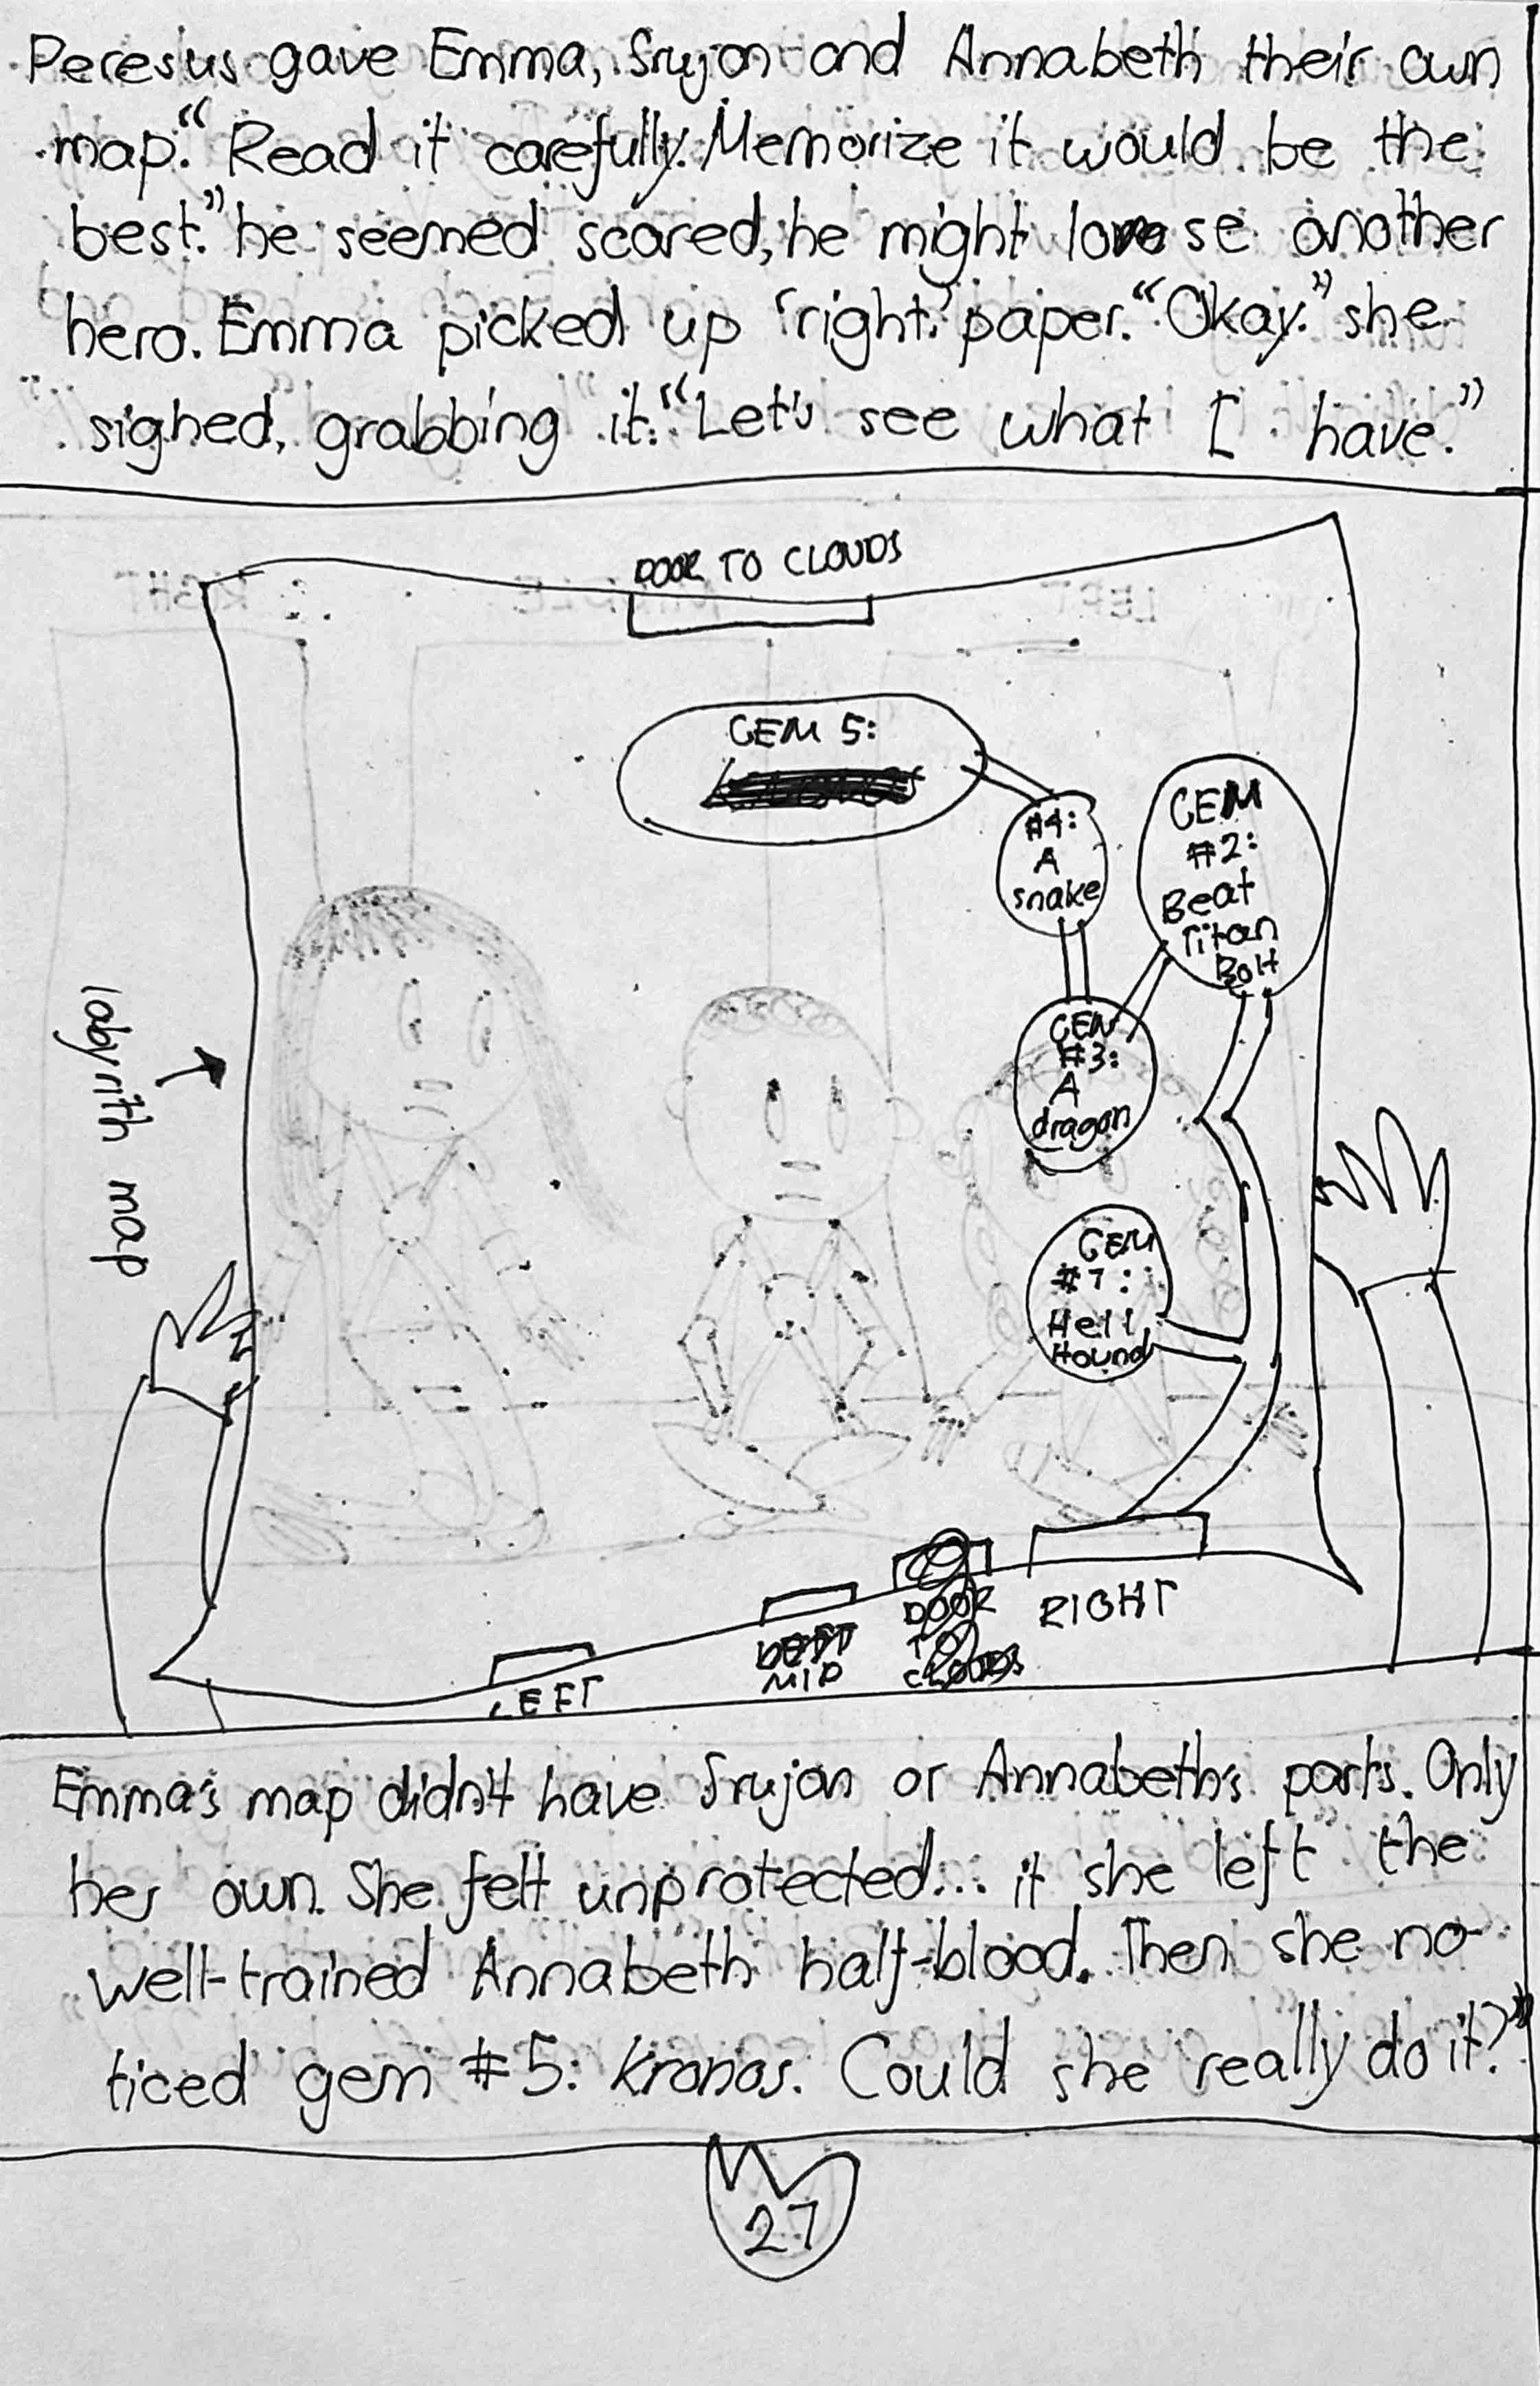 Peresus gave Emma, Srujan and Annabeth their own
map.“ Read it carefully. Memorize it would be the
best.” he seemed scared, he might lose another
hero. Emma picked up ‘right’ paper. “Okay.” she
sighed, grabbing it. “Let's see what I have.”
DOOR TO CLOUDS
GEM 5:
#4:
A
snake
GEM
#2:
Beat
Titan
Bolt
GEM
#3:
A
dragon
labyrith map
GEM
#1:
Hell
Hound
RIGHT
DOOR
TO
CLOUDS
MID
LEFT
Emma's map didn't have Srujan or Annabeth's parts. Only
her own. She felt unprotected... if she left the
well-trained Annabeth half-blood. Then she no-
ticed gem #5: Kronos. Could she really do it?”
27